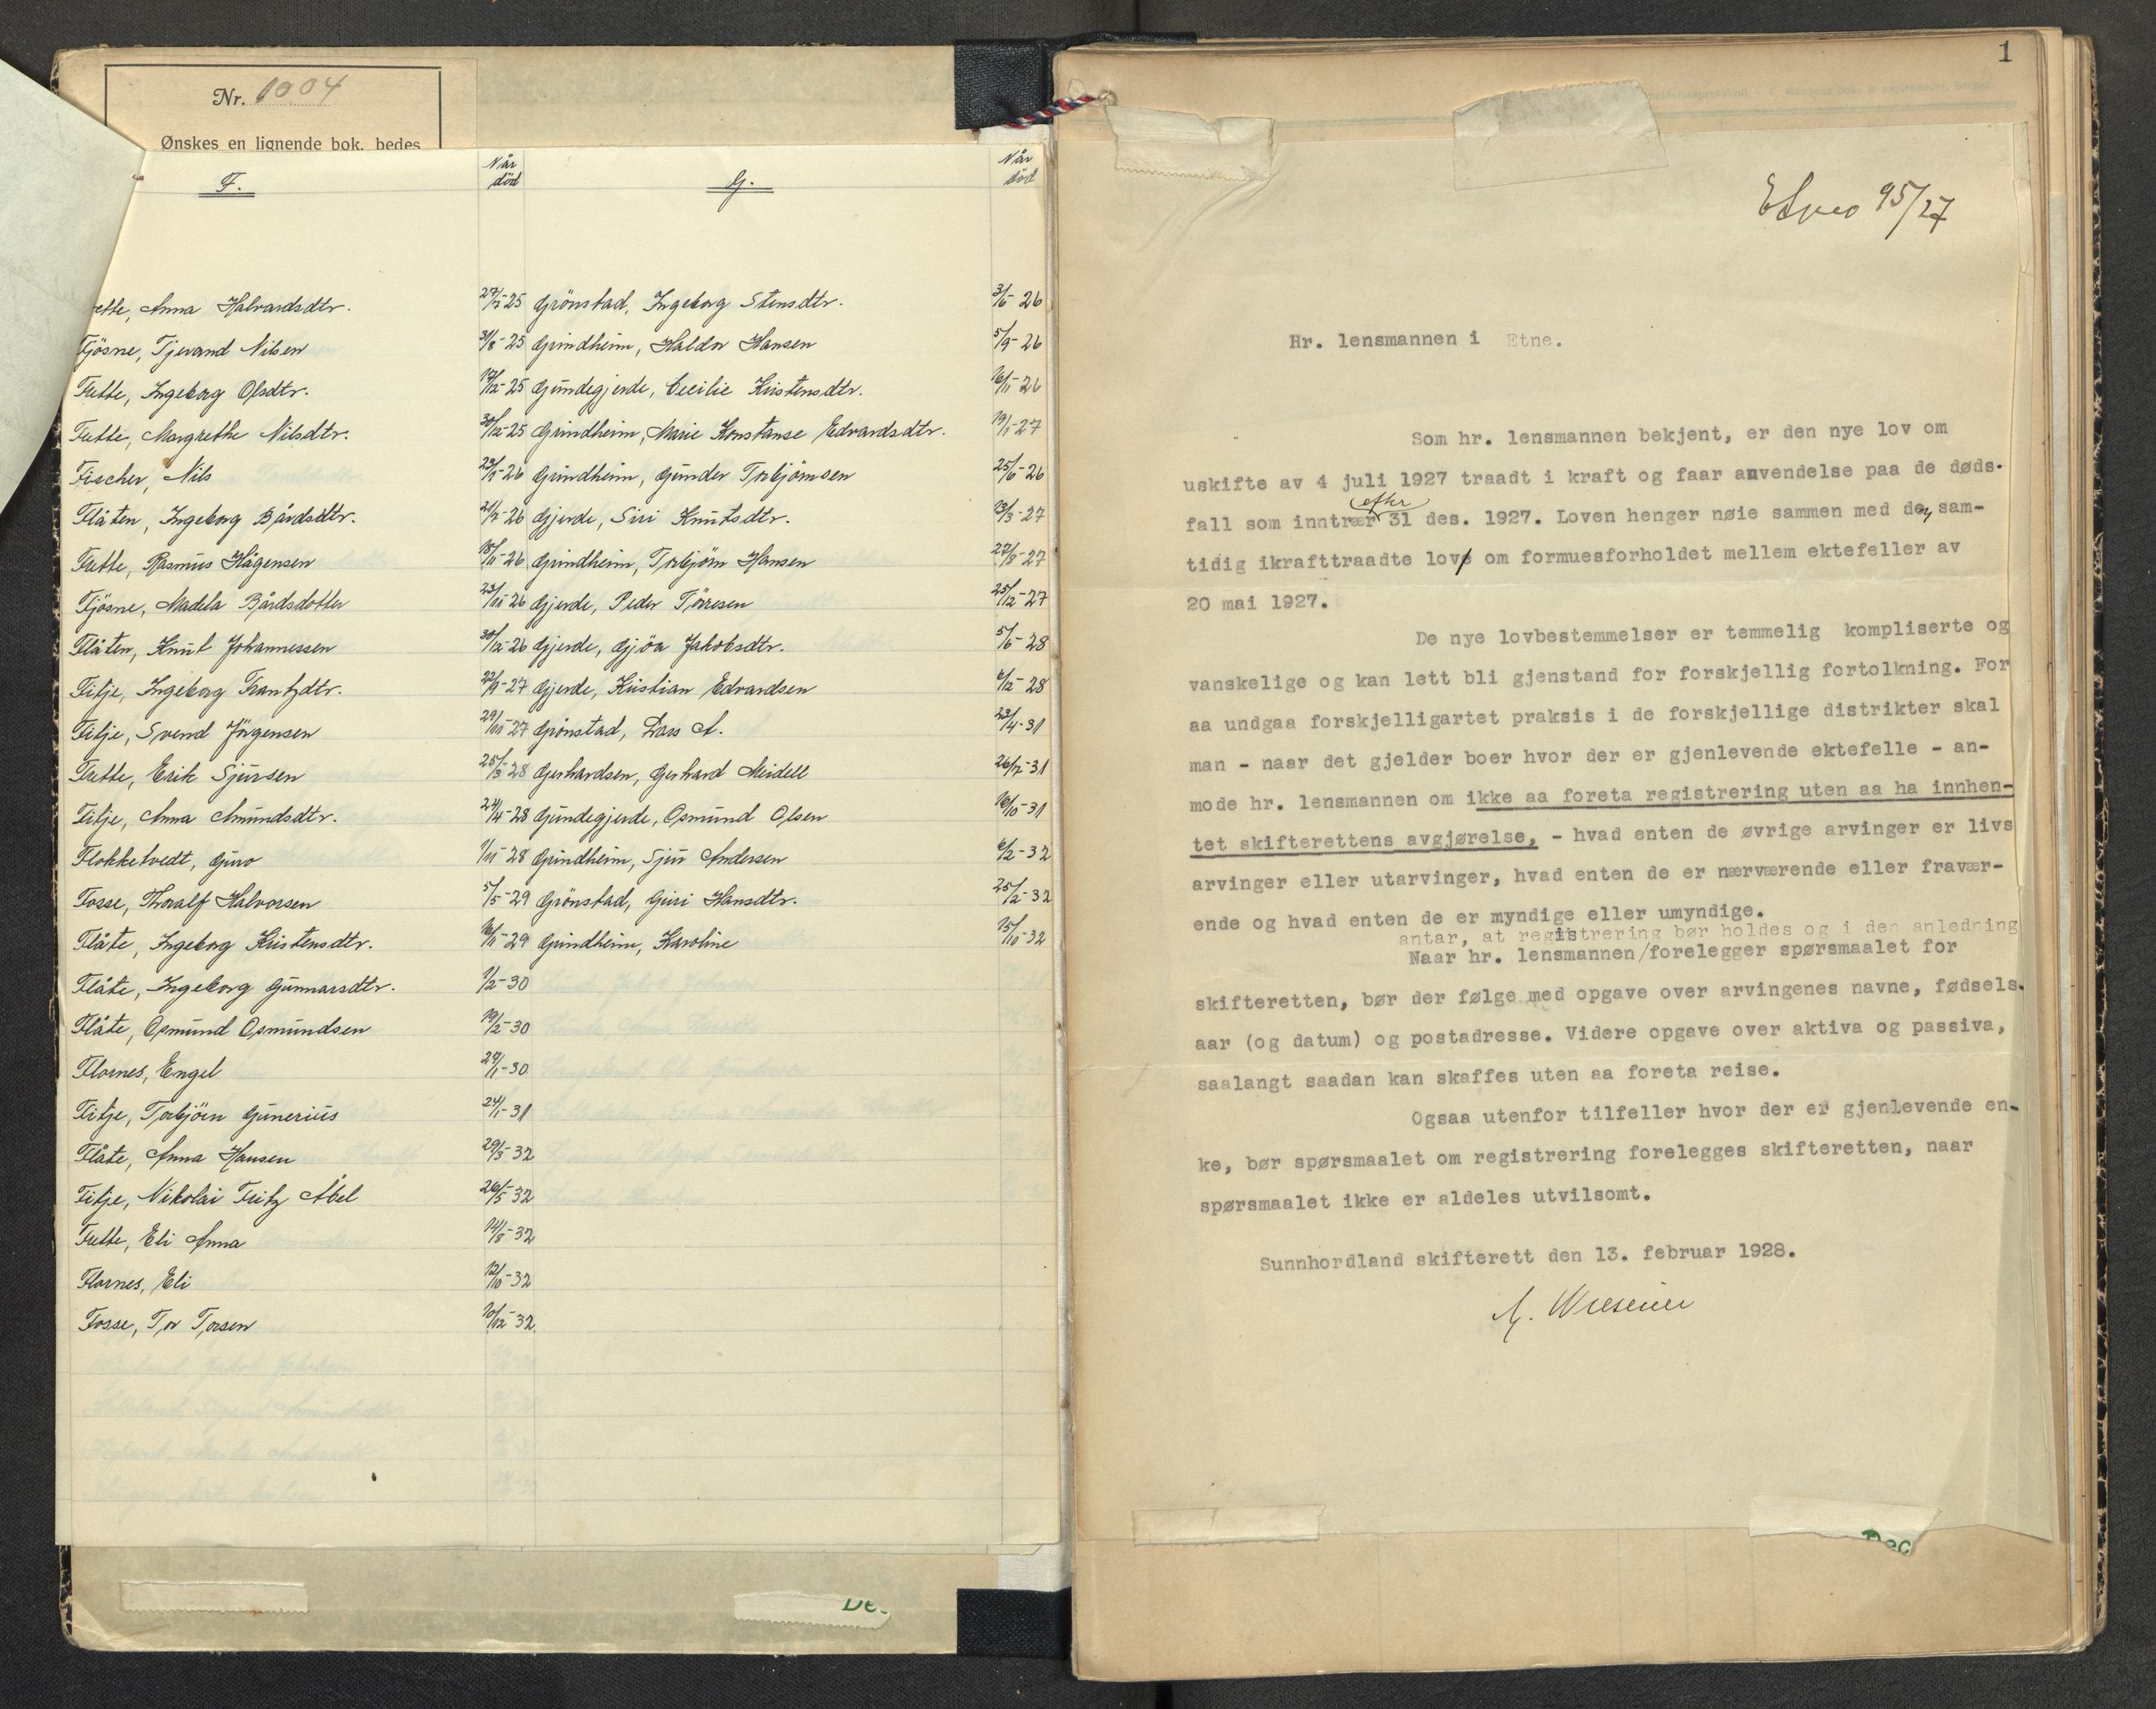 Nr. 1004
Ønskes en lignende bok, bedes
F.
Når død
G.
Når død
Anna Halvardsdtr. 25 Grönstad, Ingeborg Stensdtr. 3/6-26
Fjösne, Tjerand Nilsen 31/8-25 Grindheim, Haldor Hansen 5/9-26
Frette, Ingeborg Olsdtr. 17/12-25 Gundegjerde, Cecilie Kristensdtr. 16/11-26
Frette, Margrethe Nilsdtr. 30/12-25 Grindheim, Marie Konstanse Edvardsdtr. 19/1-27
Fischer, Nils 26 Grindheim, Gunder Torbjörnsen 25/6-26
Flåten, Ingeborg Bårdsdtr. 21/7-26 Gjerde, Siri Knutsdtr. 13/3-27
Frette, Rasmus Hågensen 18/11-26 Grindheim, Torbjörn Hansen 27/8-27
Fjösne, Madela Bårdsdotter 26 Gjerde, Peder Törresen 25/12-27
Flåten, Knut Johannessen 30/12-26 Gjerde, Gjöa Jakobsdtr. 5/6-28
Fitje, Ingeborg Frantzdtr. 22/9-27 Gjerde, Kristian Edvardsen 6/12-28
Fitje, Svend Jörgensen 27 Grönstad, Lars A. 23/4-31
Frette, Erik Sjursen 25/3-28 Gerhardsen, Gerhard Meidell 26/7-31
Fitje, Anna Amundsdtr. 24/4-28 Gundegjerde, Osmund Olsen 16/10-31
Flokketvedt, Guro 28 Grindheim, Sjur Andersen 6/2-32
Fosse, Thoralf Halvorsen 5/5-29 Grönstad, Guri Hansdtr. 25/2-32
Flåte, Ingeborg Kristensdtr. 16/11-29 Grindheim, Karoline 15/10-32
Flåte, Ingeborg Gunnarsdtr. 1/2-30
Flåte, Osmund Osmundsen 19/2-30
Flornes, Engel 29/1-30
Fitje, Torbjörn Gunerius 24/1-31
Flåte, Anna Hansen 29/3-32
Fitje, Nikolai Fritz Åbel 26/5-32
Frette, Eli Anna 14/8-32
Flornes, Eli 12/10-32
Fosse, Tor Torsen 10/12-32
De
1
Etne 95/27
Hr. lensmannen i Etne.
Som hr. lensmannen bekjent, er den nye lov om
uskifte av 4 juli 1927 traadt i kraft og faar anvendelse paa de døds-
efter
fall som inntrær 31 des. 1927. Loven henger nøie sammen med den sam-
tidig ikrafttraadte lov om formuesforholdet mellem ektefeller av
20 mai 1927.
De nye lovbestemmelser er temmelig kompliserte og
vanskelige og kan lett bli gjenstand for forskjellig fortolkning. For
aa undgaa forskjelligartet praksis i de forskjellige distrikter skal
man - naar det gjelder boer hvor der er gjenlevende ektefelle - an-
mode hr. lensmannen om ikke aa foreta registrering uten aa ha innhen-
tet skifterettens avgjørelse, - hvad enten de øvrige arvinger er livs
arvinger eller utarvinger, hvad enten de er nærværende eller fravær-
ende og hvad enten de er myndige eller umyndige.
antar, at registrering bør holdes og i den anledning
Naar hr. lensmannen/forelegger spørsmaalet for
skifteretten, bør der følge med opgave over arvingenes navne, fødsels-
aar (og datum) og postadresse. Videre opgave over aktiva og passiva,
saalangt saadan kan skaffes uten aa foreta reise.
Ogsaa utenfor tilfeller hvor der er gjenlevende en-
ke, bør spørsmaalet om registrering forelegges skifteretten, naar
spørsmaalet ikke er aldeles utvilsomt.
Sunnhordland skifterett den 13. februar 1928.
Dec